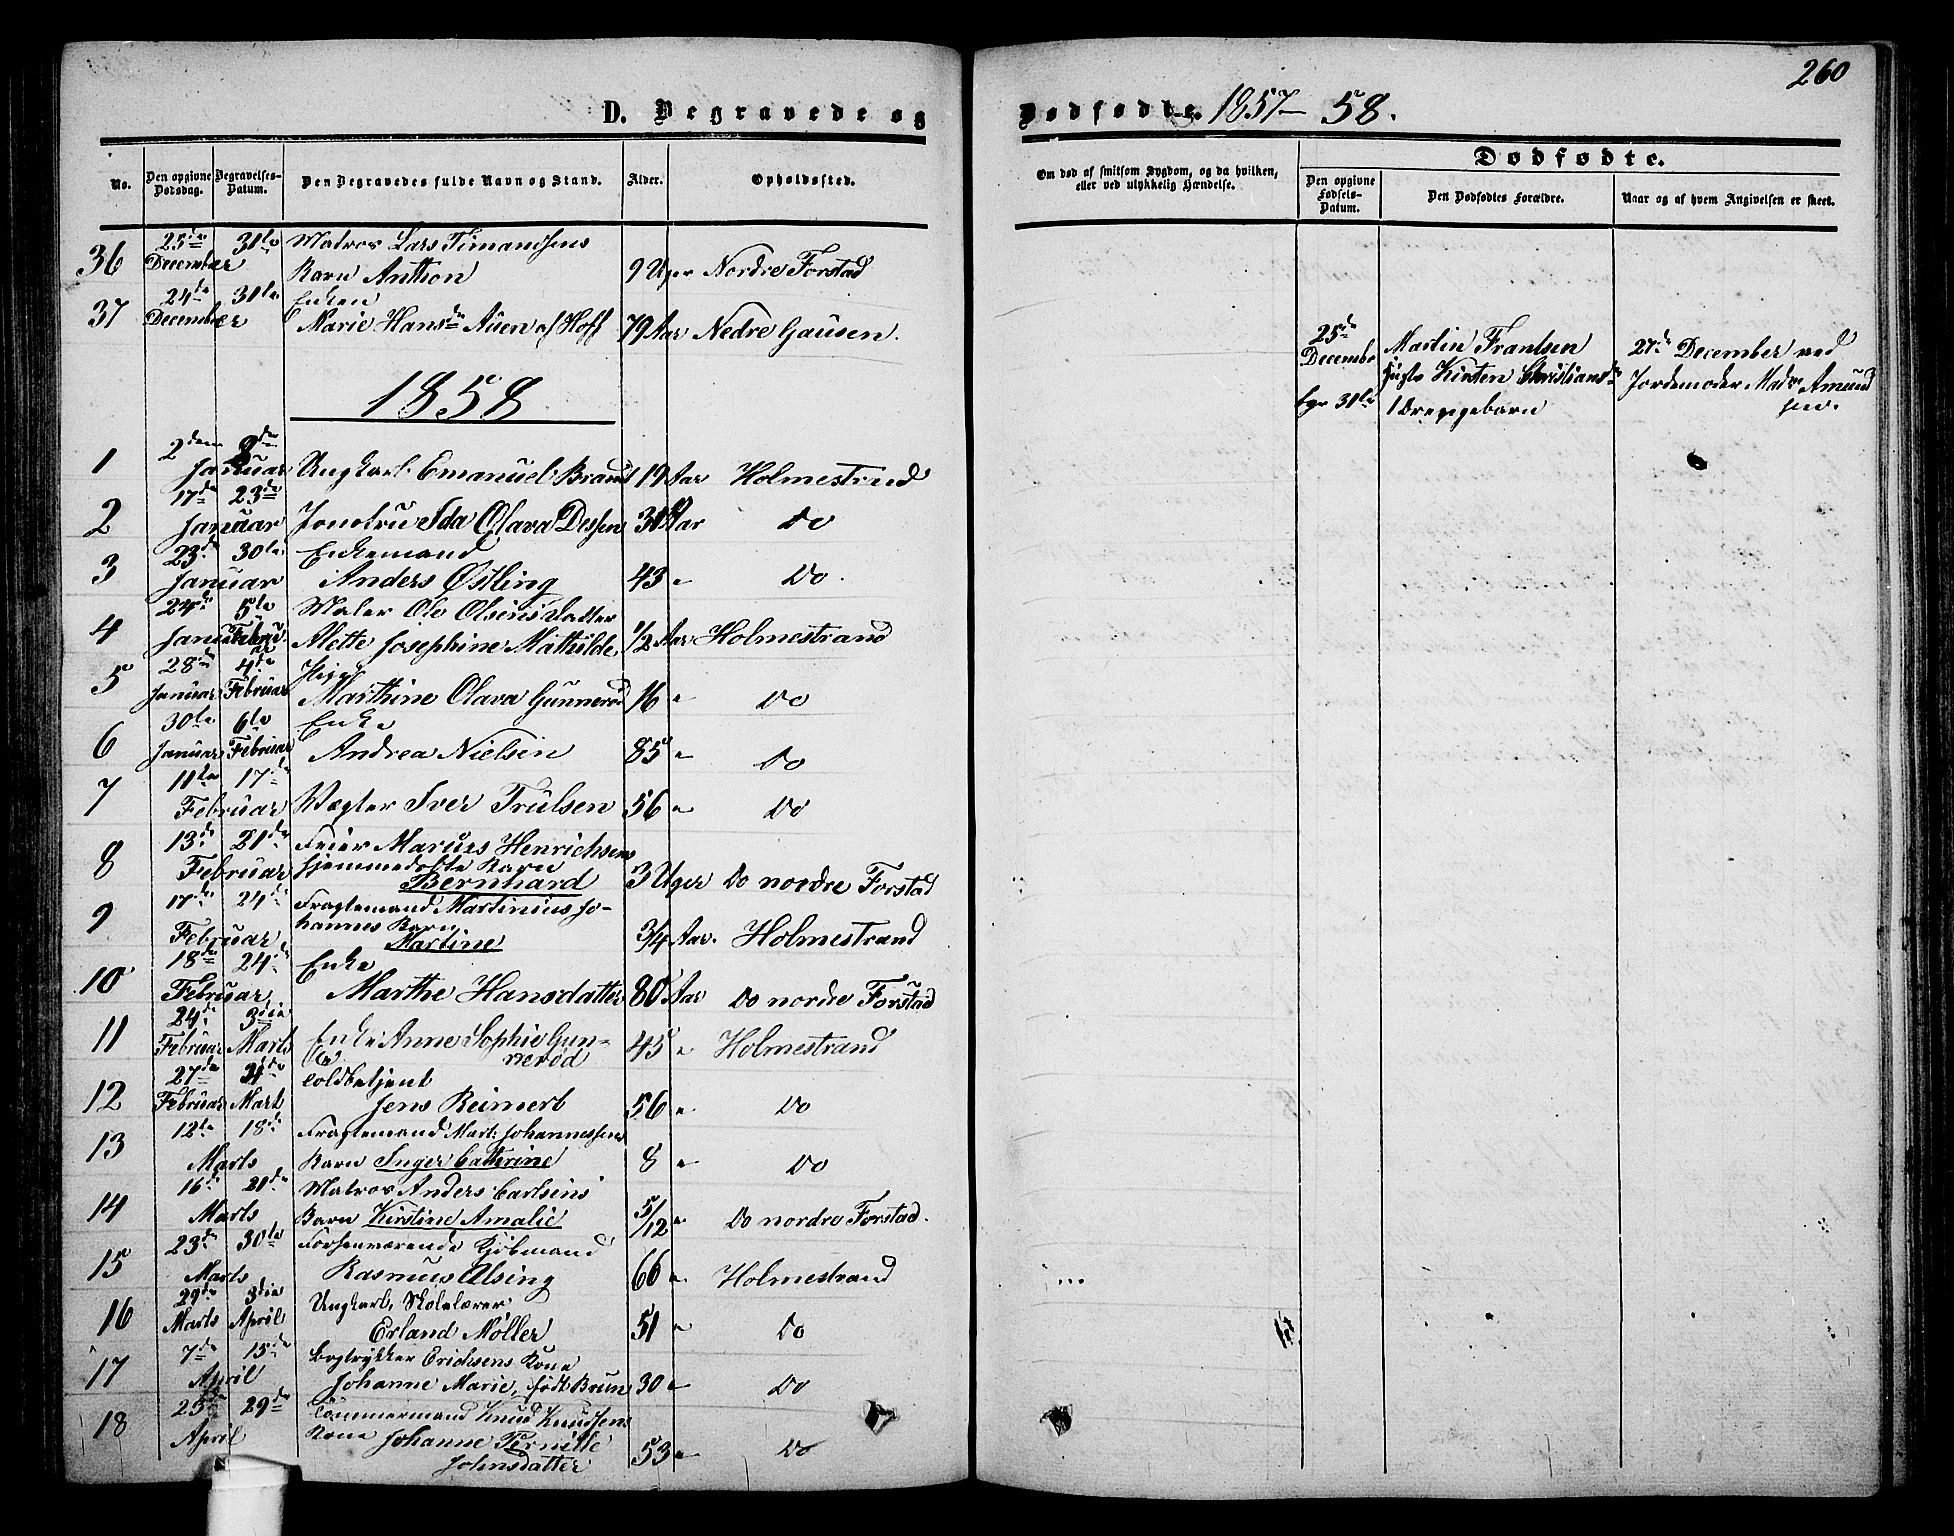 260
D. Begravede og Dødfødte. 1857-58.
No.
Den opgivne Dødsdag.
Begravelses-Datum.
Den Begravedes fulde Navn og Stand.
Alder.
Opholdssted.
Om død af smitsom Sygdom, og da hvilken, eller ved ulykkelig Hændelse.
Dødfødte.
Den opgivne Fødsels-Datum.
Den Dødfødtes Forældre.
Naar og af hvem Angivelsen er skeet.
36 25de December 31te Matros Lars Timandsens
Barn Anthon 9 Uger Nordre Forstad
37 24de December 31te Enken
Marie Hansdr Auen af Hoff 79 Aar Nedre Gausen.
25de December
Martin Frantsen
27de December ved
Kirsten Christiansdr
Jordemoder Madm Amundsen.
31te
1 Drengebarn
1858
1 2den 8de Januar Ungkarl Emanuel Brandt 19 Aar Holmestrand
2 17de 23de Januar Jomfru Ida Olava Dessen 31 Aar Do
3 23de 30te Januar Enkemand
Anders Østling 43 " Do.
4 24de Januar 5te Februar Maler Ole Olsens Datter
Alette Josephine Mathilde 1/2 Aar Holmestrand
5 28de Januar 4de Februar Pige
Marthine Olava Gunnerød 16 " Do
6 30te Januar 6te Februar Enke
Andrea Nielsen 85 " Do
7 11te 17de Februar Vægter Iver Trulsen 56 " Do
8 13de 21de Februar Feier Marius Henrichsens
hjemmedøbte Barn
Bernhard 3 Uger Do nordre Forstad
9 17de 24de Februar Fragtemand Martinius Jo-
hannes Barn
Martine 3/4 Aar. Holmestrand
10 18de 24de Februar Enke
Marthe Hansdatter 80 Aar Do nordre Forstad
11 24de Februar 3die Marts Enke Anne Sophie Gun-
nerød 45 " Holmestrand
12 27de Februar Mart Toldbetjent
Jens Reimert 56 " Do
13 12te 18de Marts Fragtemand Mart: Johannessens
Barn Inger Cathrine 8 " Do
14 16de 21de Marts Matros Anders Carlsens
Barn Kirstine Amalie 5/12 " Do nordre Forstad.
15 23de 30te Marts Forhenværende Kjøbmand
Rasmus Alsing 66 " Holmestrand
16 29de Marts 3die April Ungkarl, Skolelærer
Erland Møller 51 " Do
17 7de 15de April Bogtrykker Erichsens Kone
Johanne Marie, født Brun 30 " Do
18 23de 29de April Tømmermand Knud Knudsens
Kone Johanne Pernille
Johnsdatter 53 " Do